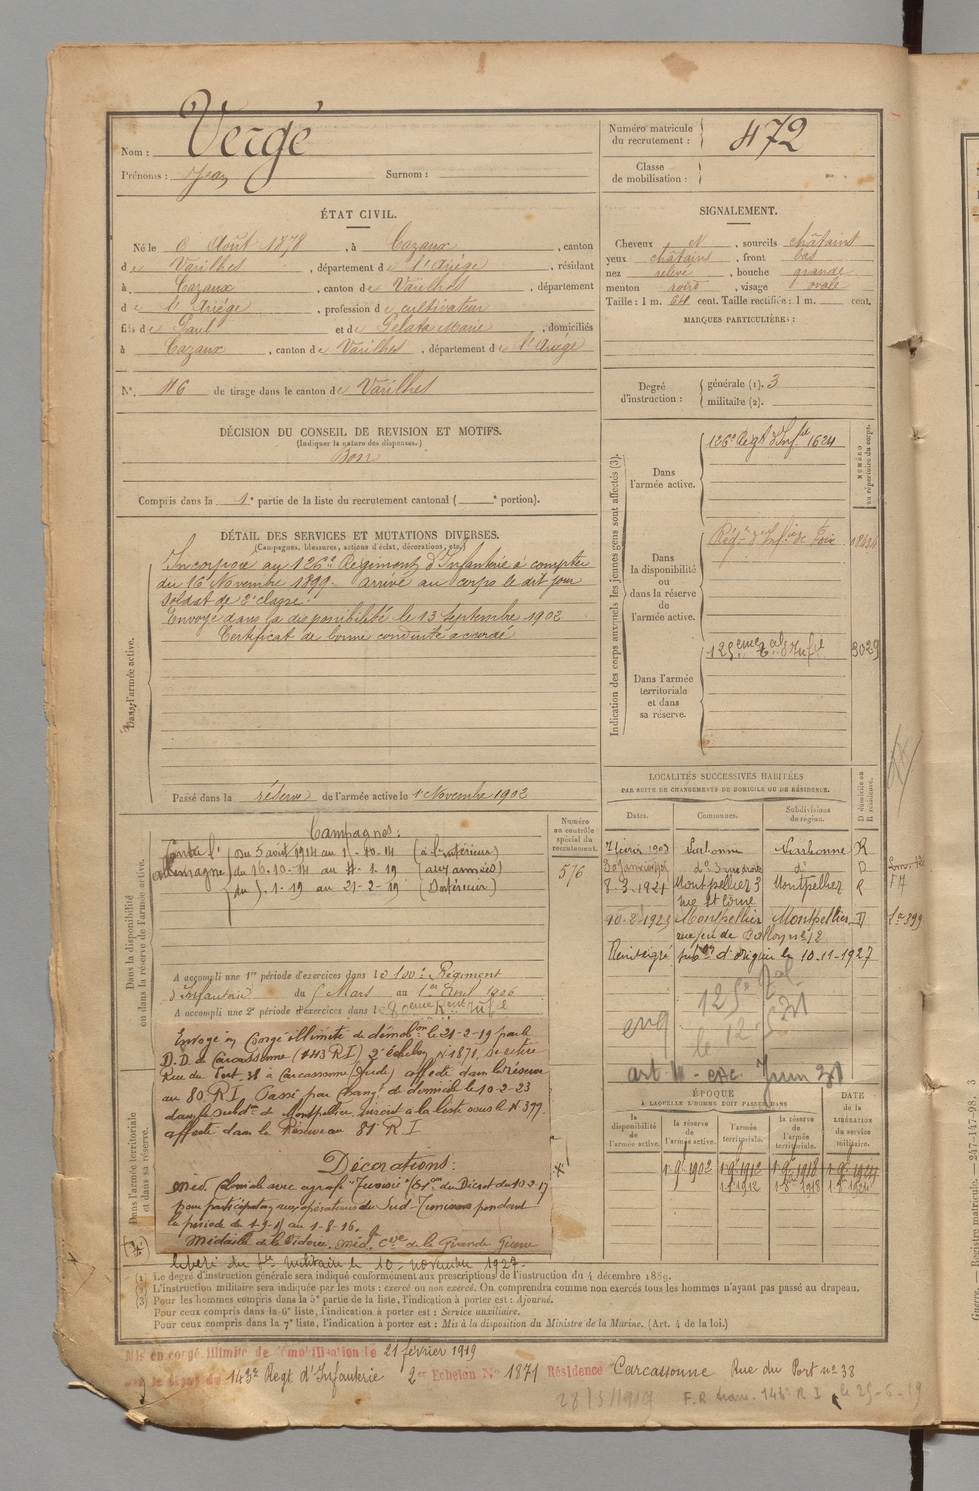 Nom : Vergé
Prénoms : Jean Surnom :
Numéro matricule du recrutement : 472
Classe de mobilisation :
ÉTAT CIVIL.
Né le Août 1878, à Cazaux, canton
de Varilhes, département de l'Ariège, résidant
à Cazaux, canton de Varilhes, département
de l'Ariège, profession de cultivateur
fils de Paul et de Gelata Marie, domiciliés
à Cazaux, canton de Varilhes, département de l'Ariège
N° 46 de tirage dans le canton de Varilhes
SIGNALEMENT.
Cheveux N, sourcils châtains
yeux châtains, front bas
nez relevé, bouche grande
menton rond, visage ovale
Taille : 1 m. 64 cent. Taille rectifiée : 1 m. cent.
MARQUES PARTICULIÈRES :
Degré d'instruction : générale (1). 3
militaire (2).
DÉCISION DU CONSEIL DE REVISION ET MOTIFS.
(Indiquer la nature des dispenses.)
Bon
Compris dans la 1e partie de la liste du recrutement cantonal ( e portion).
DÉTAIL DES SERVICES ET MUTATIONS DIVERSES.
(Campagnes, blessures, actions d'éclat, décorations, etc.)
Dans l'armée active.
Incorporé au 126e Régiment d'Infanterie à compter
du 16 Novembre 1899. arrivé au corps le dit jour
soldat de 2e classe.
Envoyé dans la disponibilité le 13 Septembre 1902
Certificat de bonne conduite accordé
Passé dans la réserve de l'armée active le 1 Novembre 1902
Indication des corps auxquels les jeunes gens sont affectés (3).
NUMÉRO au répertoire du corps.
Dans l'armée active.
126e Régt d'Infie 1624
Dans la disponibilité ou dans la réserve de l'armée active.
Régt d'Infie de Foix
Dans l'armée territoriale et dans sa réserve.
125eme tal d'Infie 3029
LOCALITÉS SUCCESSIVES HABITÉES
PAR SUITE DE CHANGEMENTS DE DOMICILE OU DE RÉSIDENCE.
Dates. Communes. Subdivisions de région. D domicile ou R résidence.
7 février 1903 Narbonne Narbonne R
do 3 rue droite do D
8-3-1921 Montpellier 3 Montpellier R
rue St Côme
10-2-1923 Montpellier Montpellier D
rue jeu de Ballon no 12
Réintégré subon d'origine le 10-11-1927
125e tal
le 12
Juin
Dans la disponibilité ou dans la réserve de l'armée active.
Campagnes :
Contre l'Allemagne (du 5 août 1914 au 1 -10-14 (à l'intérieur)
(du 16-10-14 au 4-1-19 (aux armées)
(du 5-1-19 au 21-2-19 (Intérieur)
Numéro au contrôle spécial du recrutement.
576
A accompli une 1re période d'exercices dans le 100e Régiment
d'Infanterie du 5 Mars au 1er Avril 1906
A accompli une 2e période d'exercices dans le 80eme Regt Infie
Dans l'armée territoriale et dans sa réserve.
Envoyé en Congé illimité de démobon le 21-2-19 par le
D.D. de Carcassonne (143 R I) 2e échelon, No 1871, se retire
Rue du Port 38 à Carcassonne (Aude) affecté dans la réserve
au 80e R I. Passé par changt de domicile le 10-2-23
dans la subdon de Montpellier, inscrit à la liste sous le No 399
affecté dans la Réserve au 81e R I
Décorations :
Méd. Coloniale avec agrafe "Tunisie" du Décret du 10-2-17
pour participation aux opérations du Sud-Tunisien pendant
la période de 1-9-15 au 1-8-16.
Médaille de la Victoire. Méd. Cve de la Grande Guerre
libéré du Sce militaire le 10 novembre 1927.
ÉPOQUE
À LAQUELLE L'HOMME DOIT PASSER DANS
la disponibilité de l'armée active. la réserve de l'armée active. l'armée territoriale. la réserve de l'armée territoriale.
DATE de la LIBÉRATION du service militaire.
1 9bre 1902
(1) Le degré d'instruction générale sera indiqué conformément aux prescriptions de l'instruction du 4 décembre 1889.
(2) L'instruction militaire sera indiquée par les mots : exercé ou non exercé. On comprendra comme non exercés tous les hommes n'ayant pas passé au drapeau.
(3) Pour les hommes compris dans la 5e partie de la liste, l'indication à porter est : Ajourné.
Pour ceux compris dans la 6e liste, l'indication à porter est : Service auxiliaire.
Pour ceux compris dans la 7e liste, l'indication à porter est : Mis à la disposition du Ministre de la Marine. (Art. 4 de la loi.)
Mis en congé illimité de démobilisation le 21 février 1919
143e Regt d'Infanterie 2e Echelon No 1871 Résidence Carcassonne Rue du Port no 38
28/3/1919 143e R I le 25-6-19